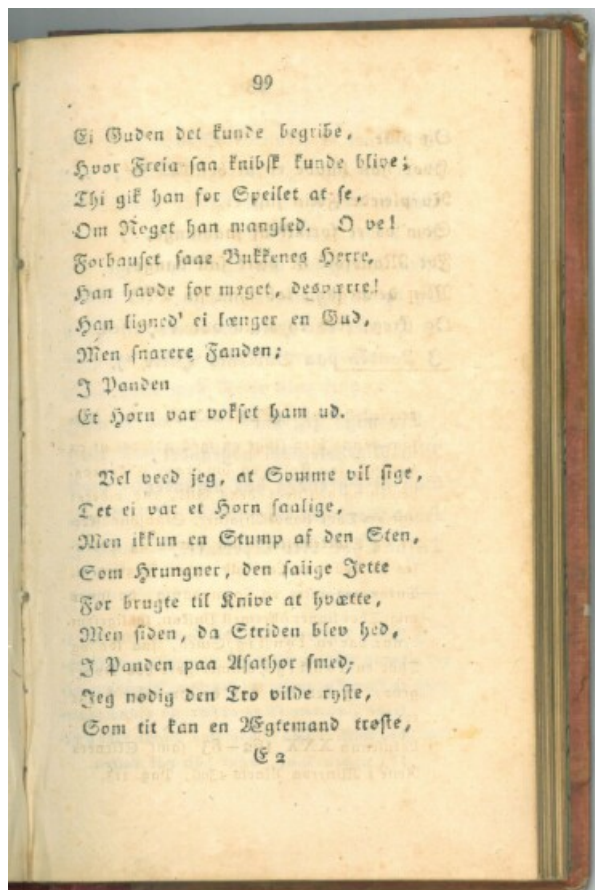 99
Ei Guden det kunde begribe,
Hvor Freia saa knibsk kunde blive;
Thi gik han for Speilet at se,
Om Noget han mangled. O ve!
Forbauset saae Bukkenes Herre,
Han havde for meget, desværre!
Han ligned' ei længer en Gud,
Men snarere Fanden;
I Panden
Et Horn var vokset ham ud.
Vel veed jeg, at Somme vil sige,
Det ei var et Horn saalige,
Men ikkun en Stump af den Sten,
Som Hrungner, den salige Jette
Før brugte til Knive at hvætte,
Men siden, da Striden blev hed,
I Panden paa Asathor smed;
Jeg nødig den Tro vilde ryste,
Som tit kan en Ægtemand trøste,
E 2